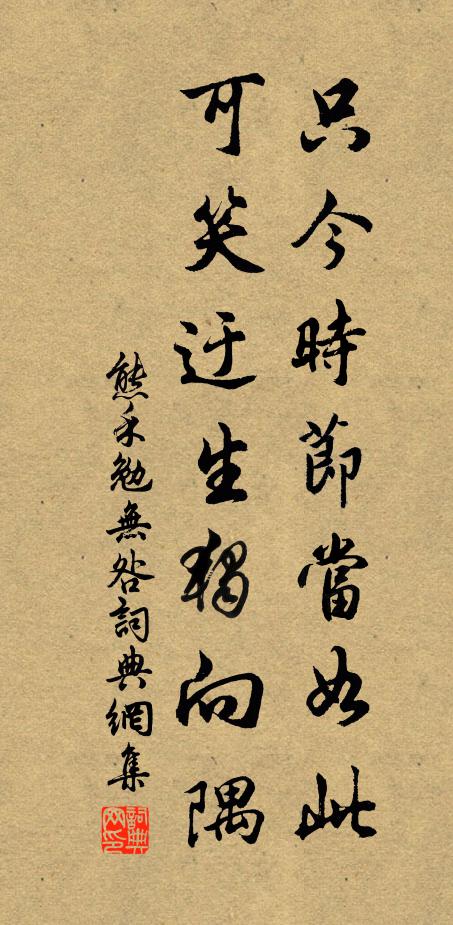 只今時節當如此
可笑迂生獨向隅
熊禾勉無咎詞典網集
詞典
网印